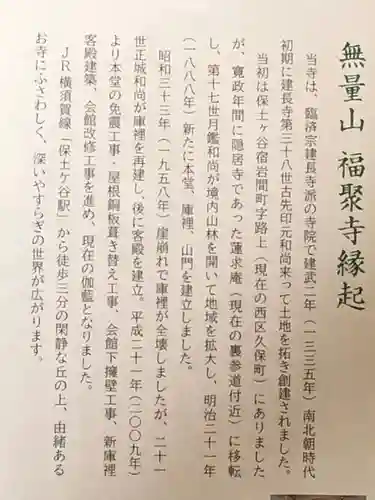 無量山 福聚寺縁起
当寺は、臨済宗建長寺派の寺院で建武二年（一三三五年）南北朝時代
初期に建長寺第三十八世古先印元和尚来って土地を拓き創建されました。
当初は保土ヶ谷宿岩間町字路上（現在の西区久保町）にありました
が、寛政年間に隠居寺であった蓮求庵（現在の裏参道付近）に移転
し、第十七世月鑑和尚が境内山林を開いて地域を拡大し、明治二十一年
（一八八八年）新たに本堂、庫裡、山門を建立しました。
昭和三十三年（一九五八年）崖崩れで庫裡が全壊しましたが、二十一
世正城和尚が庫裡を再建し、後に客殿を建立。平成二十一年（二〇〇九年）
より本堂の免震工事・屋根銅板葺き替え工事、会館下擁壁工事、新庫裡
客殿建築、会館改修工事を進め、現在の伽藍となりました。
ＪＲ横須賀線「保土ヶ谷駅」から徒歩三分の閑静な丘の上、由緒ある
お寺にふさわしく、深いやすらぎの世界が広がります。